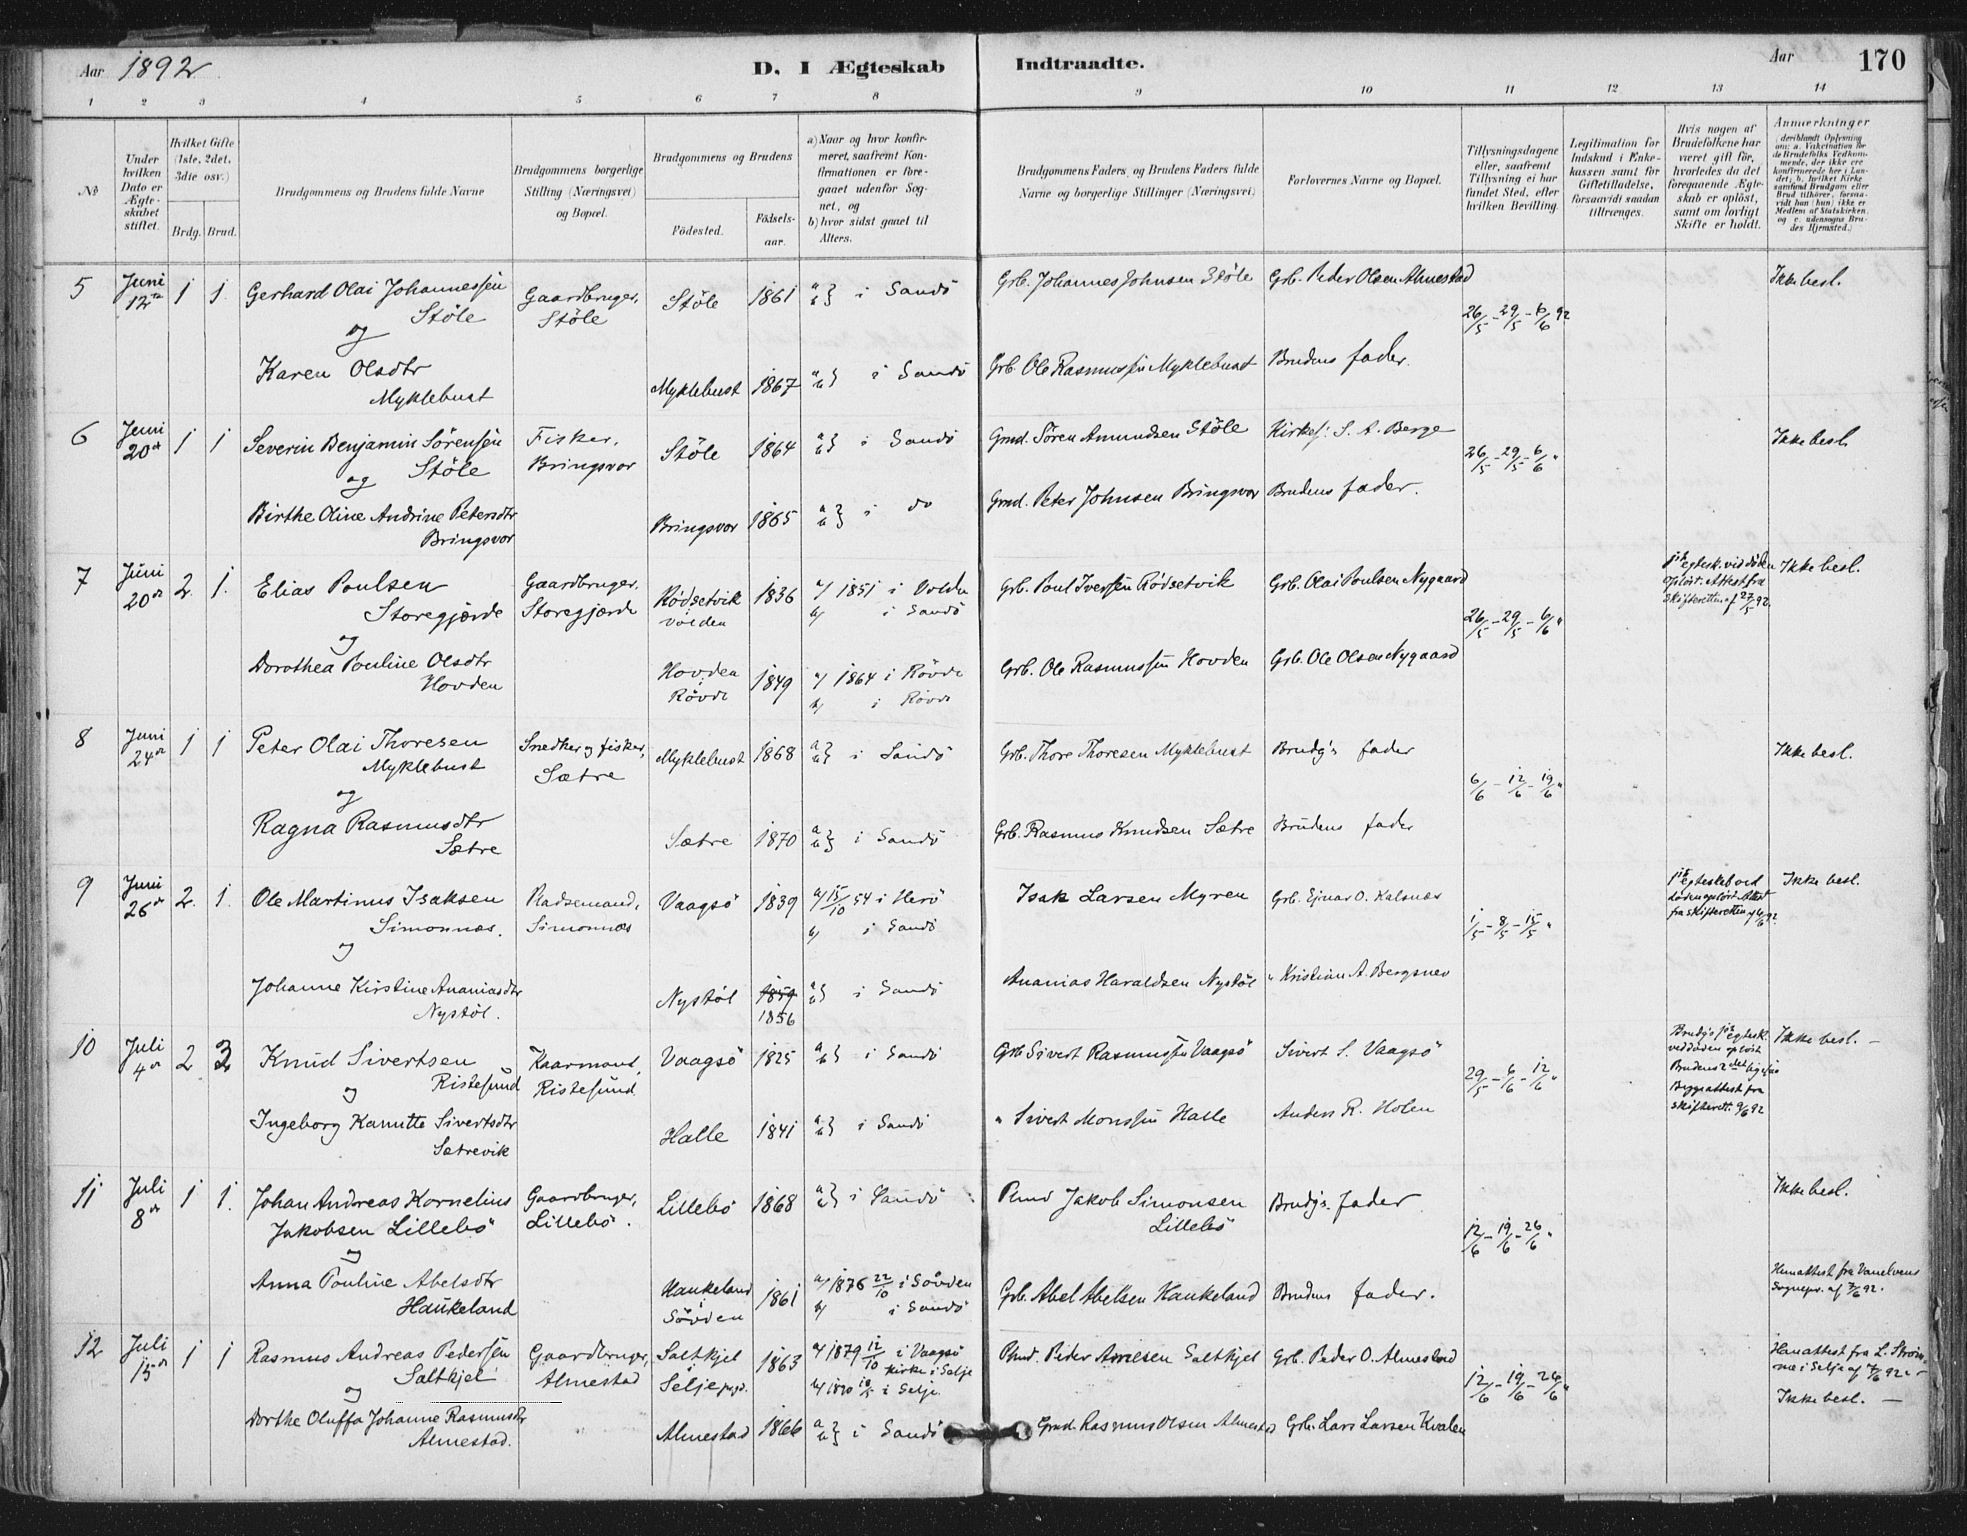 Aar 1892. D. I Ægteskab Indtraadte. Aar 170
1 2 3 4 5 6 7 8 9 10 11 12 13 14
No
Under hvilken Dato er Ægteskabet stiftet.
Hvilket Gifte (1ste, 2det, 3die osv.)
Brdg. Brud.
Brudgommens og Brudens fulde Navne
Brudgommens borgerlige Stilling (Næringsvei) og Bopæl.
Brudgommens og Brudens
Födested. Födsels-aar.
a) Naar og hvor konfirmeret, saafremt Konfirmationen er foregaaet udenfor Sognet, og
b) hvor sidst gaaet til Alters.
Brudgommens Faders, og Brudens Faders fulde Navne og borgerlige Stillinger (Næringsvei).
Forlovernes Navne og Bopæl.
Tillysningsdagene eller, saafremt Tillysning ei har fundet Sted, efter hvilken Bevilling
Legitimation for Indskud i Enkekassen samt for Giftetilladelse, forsaavidt saadan tiltrænges.
Hvis nogen af Brudefolkene har været gift för, hvorledes da det foregaaende Ægteskab er oplöst, samt om lovligt Skifte er holdt.
Anmærkninger
(deriblandt Oplysning om: a. Vakcination for de Brudefolks Vedkommende, der ikke ere konfirmerede her i Landet; b. hvilket Kirkesamfund Brudgom eller Brud tilhörer, forsaavidt han (hun) ikke er Medlem af Statskirken, og c. udensogns Brudes Hjemsted.)
5 Juni 12te 1 1. Gerhard Olai Johannessen Gaardbruger, Støle 1861 a b} i Sandö Grb. Johannes Johnsen Støle Grb. Peder Olsen Almestad Ikke besl.
Støle Støle 26/5 - 29/5 - 6/6 92
og
Karen Olsdtr Myklebust 1867 a b} i Sandö Grb. Ole Rasmussen Myklebust Brudens fader.
Myklebust
6 Juni 20de 1 1 Severin Benjamin Sörensen Fisker, Støle 1864 a b} i Sandö Grmd. Sören Amundsen Støle Kirkes: S. A. Berge Ikke besl.
Støle Bringsvor 26/5 - 29/5 - 6/6 "
og
Birthe Oline Andrine Petersdtr Bringsvor 1865 a b} i do Grmd. Peter Johnsen Bringsvor Brudens fader.
Bringsvor
7 Juni 20de 2. 1. Elias Poulsen Gaardbruger, Rödsetvik 1836 a/ 1851 i Volden Grb. Poul Iversen Rödsetvik Grb. Olai Poulsen Nygaard 1ste egtesk. ved döden oplöst. Attest fra Skifteretten af 27/5 92. Ikke besl.
Storegjærde Storegjærde i Volden b/ i Sandö 26/5 - 29/5 - 6/6 "
og
Dorothea Pouline Olsdtr Hovden 1849 a/ 1864 i Rövde Grb. Ole Rasmussen Hovden Grb. Ole Olsen Nygaard
Hovden i Rövde b/ i Rövde
8 Juni 24de 1 1 Peter Olai Thoresen Snedker og fisker, Myklebust 1868 a b} i Sandö Grb. Thore Thoresen Myklebust Brudg's fader Ikke besl.
Myklebust Sætre 6/6 - 12/6 - 19/6 "
og
Ragna Rasmusdtr Sætre 1870 a b} i Sandö Grb. Rasmus Knudsen Sætre Brudens fader
Sætre
9 Juni 26de 2. 1. Ole Martinus Isaksen Pladsemand, Vaagsö 1839 a/ 15/10 54 i Herö Isak Larsen Myren Grb. Ejnar O. Kalsnæs 1ste egteskab ved döden oplöst. Attest fra skifteretten af 4/6 92. Ikke besl.
Simonnæs. Simonnæs b/ i Sandö 1/5 - 8/5 - 15/5 "
og
Johanne Kirstine Ananiasdtr Nystöl 1859 a b} i Sandö Ananias Haraldsen Nystöl " Kristian A. Bergsnev
Nystöl. 1856
10 Juli 4de 2 3 Knud Sivertsen Kaarmand, Vaagsö 1825 a b} i Sandö Grb Sivert Rasmussen Vaagsö Sivert S. Vaagsö Brudg's 1ste egtesk. ved döden oplöst Ikke besl. —
og Ristesund Ristesund 29/5 - 6/6 - 12/6 " Brudens 2det ligesaa
Ingeborg Kanutte Sivertsdtr Halle 1841 a b} i Sandö " Sivert Monssen Halle Anders R. Holen Begges attest fra skifterett. 9/6 92
Sætrevik
11 Juli 8de 1 1. Johan Andreas Kornelius Gaardbruger, Lillebö 1868 a b} i Sandö Plmd Jakob Simonsen Brudg's. fader Ikke besl.
Jakobsen Lillebö Lillebö. Lillebö 12/6 - 19/6 - 26/6 "
og
Anna Pouline Abelsdtr Haukeland 1861 a/ 1876 22/10 i Sövden Grb. Abel Abelsen Haukeland Brudens fader. Hunattest fra Vanelvens Sognepr. af 7/6 92.
Haukeland i Sövden b/ i Sandö
12 Juli 15de 1 1 Rasmus Andreas Pedersen Gaardbruger, Saltkjel 1863 a/ 1879 12/10 i Vaagsö kirke i Selje Plmd. Peder Saltkjel Grb. Peder O. Almestad Hanattest fra L. i Selje af 7/6 92. —
Saltkjel Almestad Selje b/ 1890 18/5 i Selje. 12/6 - 19/6 - 26/6 "
og Ikke besl. —
Dorthe Oluffa Johanne Rasmusdtr Almestad 1866 a b} i Sandö Grmd. Rasmus Olsen Almestad Grb. Lars Larsen Kvalen
Almestad.